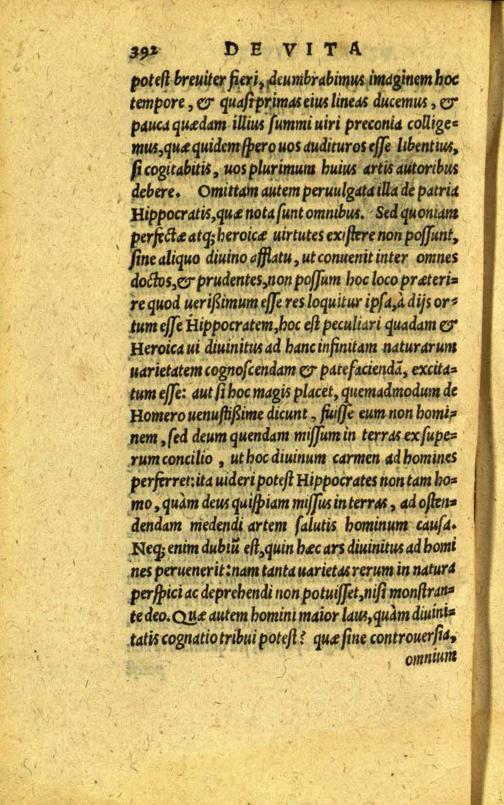 392 DE VITA
potest breviter fieri, deumbrabimus imaginem hoc
tempore, & quasi primas eius lineas ducemus, &
pauca quædam illius summi uiri preconia collige=
mus, quæ quidem spero uos audituros esse libentius,
si cogitabitis, uos plurimum huius artis autoribus
debere. Omittam autem peruulgata illa de patria
Hippocratis, quæ nota sunt omnibus. Sed quoniam
perfectæ atq; heroicæ uirtutes existere non possunt,
sine aliquo diuino afflatu, ut conuenit inter omnes
doctos, & prudentes, non possum hoc loco præteri=
re quod uerißimum esse res loquitur ipsa, à dijs or=
tum esse Hippocratem, hoc est peculiari quadam &
Heroica ui diuinitus ad hanc infinitam naturarum
uarietatem cognoscendam & patefaciendā, excita=
tum esse: aut si hoc magis placet, quemadmodum de
Homero uenustißime dicunt, fuisse eum non homi=
nem, sed deum quendam missum in terras ex supe=
rum concilio, ut hoc diuinum carmen ad homines
perferret: ita uideri potest Hippocrates non tam ho=
mo, quàm deus quispiam missus in terras, ad osten=
dendam medendi artem salutis hominum causa.
Neq; enim dubiū est, quin hæc ars diuinitus ad homi
nes peruenerit: nam tanta uarietas rerum in natura
perspici ac deprehendi non potuisset, nisi monstran=
te deo. Quæ autem homini maior laus, quàm diuini=
tatis cognatio tribui potest? quæ sine controuersia,
omnium